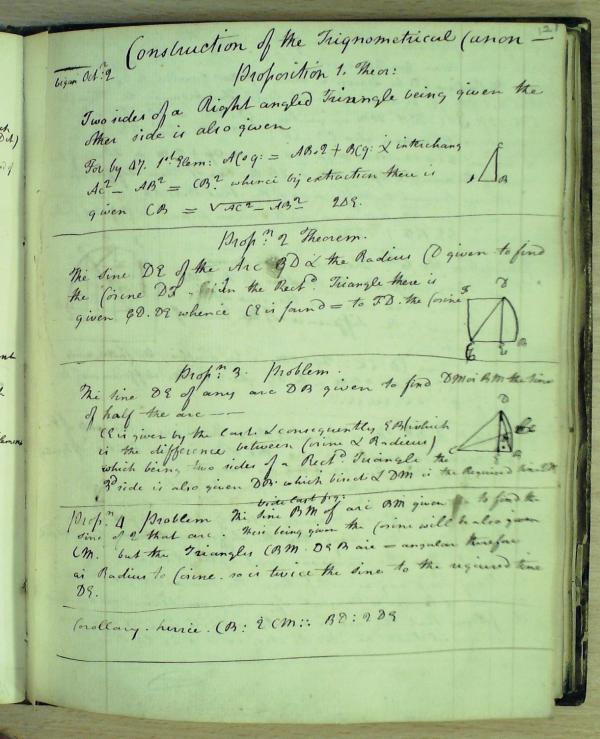 Construction of the Trignometrical Canon —
121
began Oct.r 2
Proposition 1. Theor:
Two sides of a Right angled Triangle being given the
other side is also given
For by 47. 1st Elem: ACq: = ABq + BCq: & interchang
AC2 - AB2 = CB2 whence by extraction there is
given CB = √AC2 - AB2 QDE.
Prop.n 2 Theorem.
The Sine DE of the Arc BD & the Radius CD given to find
the Cosine DF - In the Rect.d Triangle there is
given CD. DE whence CE is found = to FD. the Cosine
Prop.n 3. Problem.
The sine DE of any arc DB given to find DM or BM the sine
of half the arc —
CE is given by the last. & consequently EB (which
is the difference between Cosine & Radius)
which being two sides of a Rect.d Triangle the
3d side is also given DB. which bisect & DM is the Required sine
vide last fig.
Prop.n 4 Problem The Sine BM of arc BM given to find the
sine of 2 that arc. This being given the Cosine will be also given
CM. but the Triangles CBM. DEB are = angular therefore
as Radius to Cosine. so is twice the sine to the required sine
DE.
Corollary. hence. CB: 2 CM:: BD: 2DE